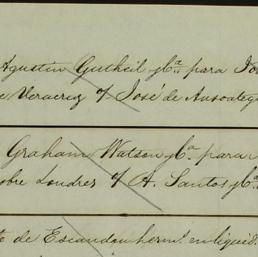 Agustin Gutheil y Cª para
Veracruz º/ José de Ansoategui
Graham Watson y Cª para
sobre Londres º/ A. Santos y Cª
de Escandon hermˢ en liquidⁿ